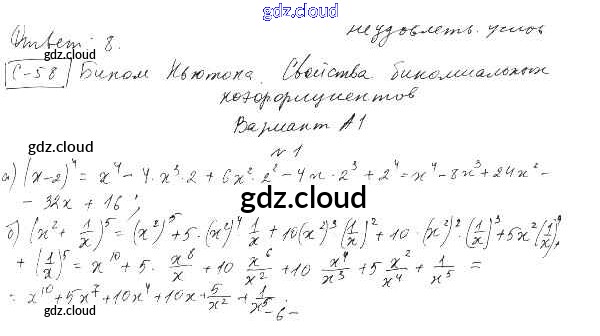 gdz.cloud
неудовлеть. услов
Ответ: 8.
gdz.cloud
С-58 Бином Ньютона. Свойства биномиальных
коэффициентов
Вариант А1
gdz.cloud
№1
а) (x-2)⁴ = x⁴ - 4·x³·2 + 6x²·2² - 4x·2³ + 2⁴ = x⁴ - 8x³ + 24x² -
- 32x + 16;
gdz.cloud
б) (x² + 1/x)⁵ = (x²)⁵ + 5·(x²)⁴ 1/x + 10(x²)³(1/x)² + 10·(x²)²·(1/x)³ + 5x²(1/x)⁴ +
+ (1/x)⁵ = x¹⁰ + 5·x⁸/x + 10 x⁶/x² + 10 x⁴/x³ + 5 x²/x⁴ + 1/x⁵ =
gdz.cloud
gdz.cloud
= x¹⁰ + 5x⁷ + 10x⁴ + 10x + 5/x² + 1/x⁵
- 6 -
gdz.cloud